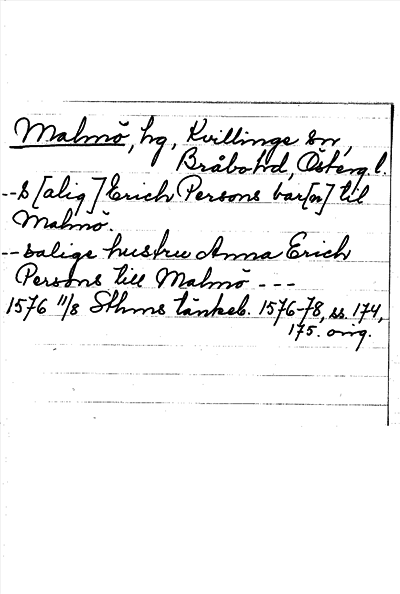 Malmö, hg, Kvillinge sn,
Bråbo hd, Österg. l.
-- s [alig] Erich Persons bar[n] til
Malmö.
-- salige hustru Anna Erich
Persons till Malmö ---
1576 11/8 Sthms tänkeb. 1576-78, ss. 174,
175. orig.